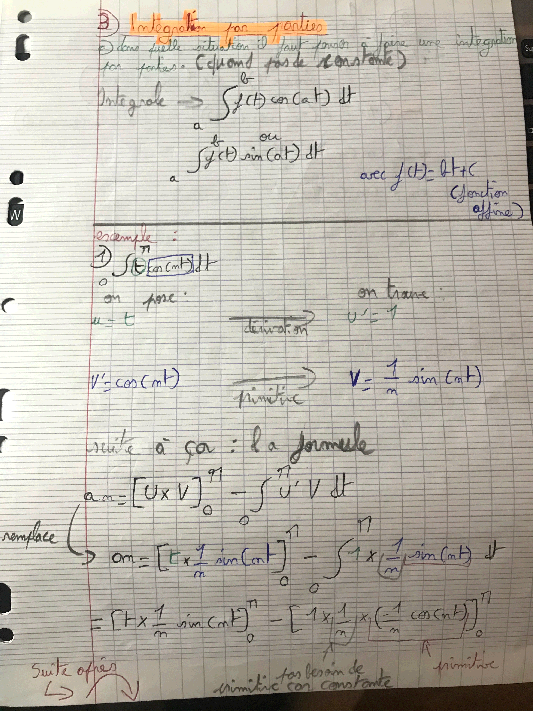 3) Intégration par parties
dans quelle situation il faut penser à faire une intégration
par parties. (quand pas de constante)
Intégrale → ∫_a^b f(t) cos(at) dt
ou
∫_a^b f(t) sin(at) dt
avec f(t) = bt+c
(fonction
affine)
exemple :
1) ∫_0^π t cos(nt) dt
on pose : on trouve :
u = t dérivation u' = 1
V' = cos(nt) primitive V = 1/n sin(nt)
suite à ça : la formule
an = [U x V]_0^π - ∫_0^π U' V dt
remplace
an = [t x 1/n sin(nt]_0^π - ∫_0^π 1 x 1/n sin(nt) dt
= [t x 1/n sin(nt]_0^π - [1 x 1/n x (-1/n cos(nt)]_0^π
Suite après
pas besoin de
primitive car constante
primitive